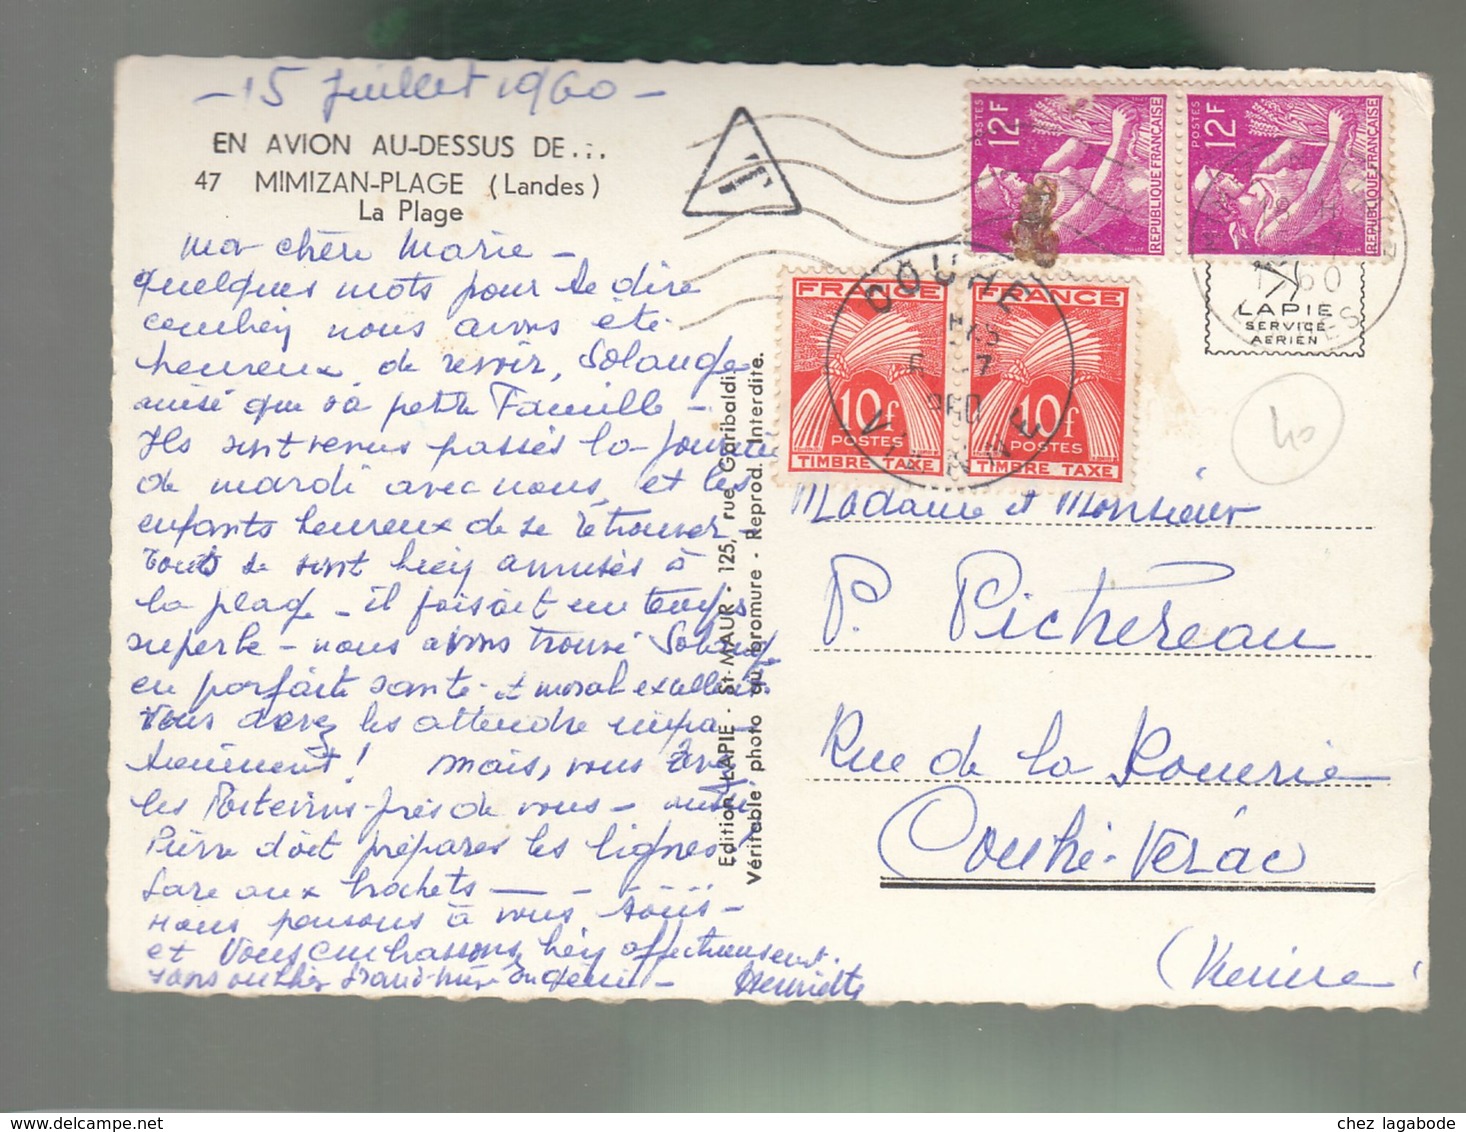 - 15 Juillet 1960 -
EN AVION AU-DESSUS DE...
47 MIMIZAN-PLAGE (Landes)
La Plage
Ma chère Marie -
quelques mots pour te dire
combien nous avons été
heureux de revoir, Solange
ainsi que sa petite Famille -
Ils sont venus passés la journée
de mardi avec nous, et les
enfants heureux de se retrouver -
tous se sont bien amusés à
la plage - il faisait un temps
superbe - nous avons trouvé Solange
en parfaite santé - et moral excellent
Vous devez les attendre impa-
tiemment ! Mais, vous
les Poitevins près de vous - aussi,
Pierre doit préparer les lignes
gare aux brochets - -
Nous pensons à vous tous -
et Vous embrassons bien affectueusement.
sans oublier Grand-mère
Henriette
Edition LAPIE - St-MAUR - 125, rue Garibaldi
Véritable photo au bromure - Reprod. Interdite.
T
POSTES
12F
REPUBLIQUE FRANÇAISE
POSTES
12F
REPUBLIQUE FRANÇAISE
LAPIE
SERVICE
AERIEN
FRANCE
10f
POSTES
TIMBRE TAXE
FRANCE
10f
POSTES
TIMBRE TAXE
COUHE
VIENNE
40
Madame et Monsieur
P. Pichereau
Rue de la Rouerie
Couhé-Vérac
(Vienne)
chez lagabode